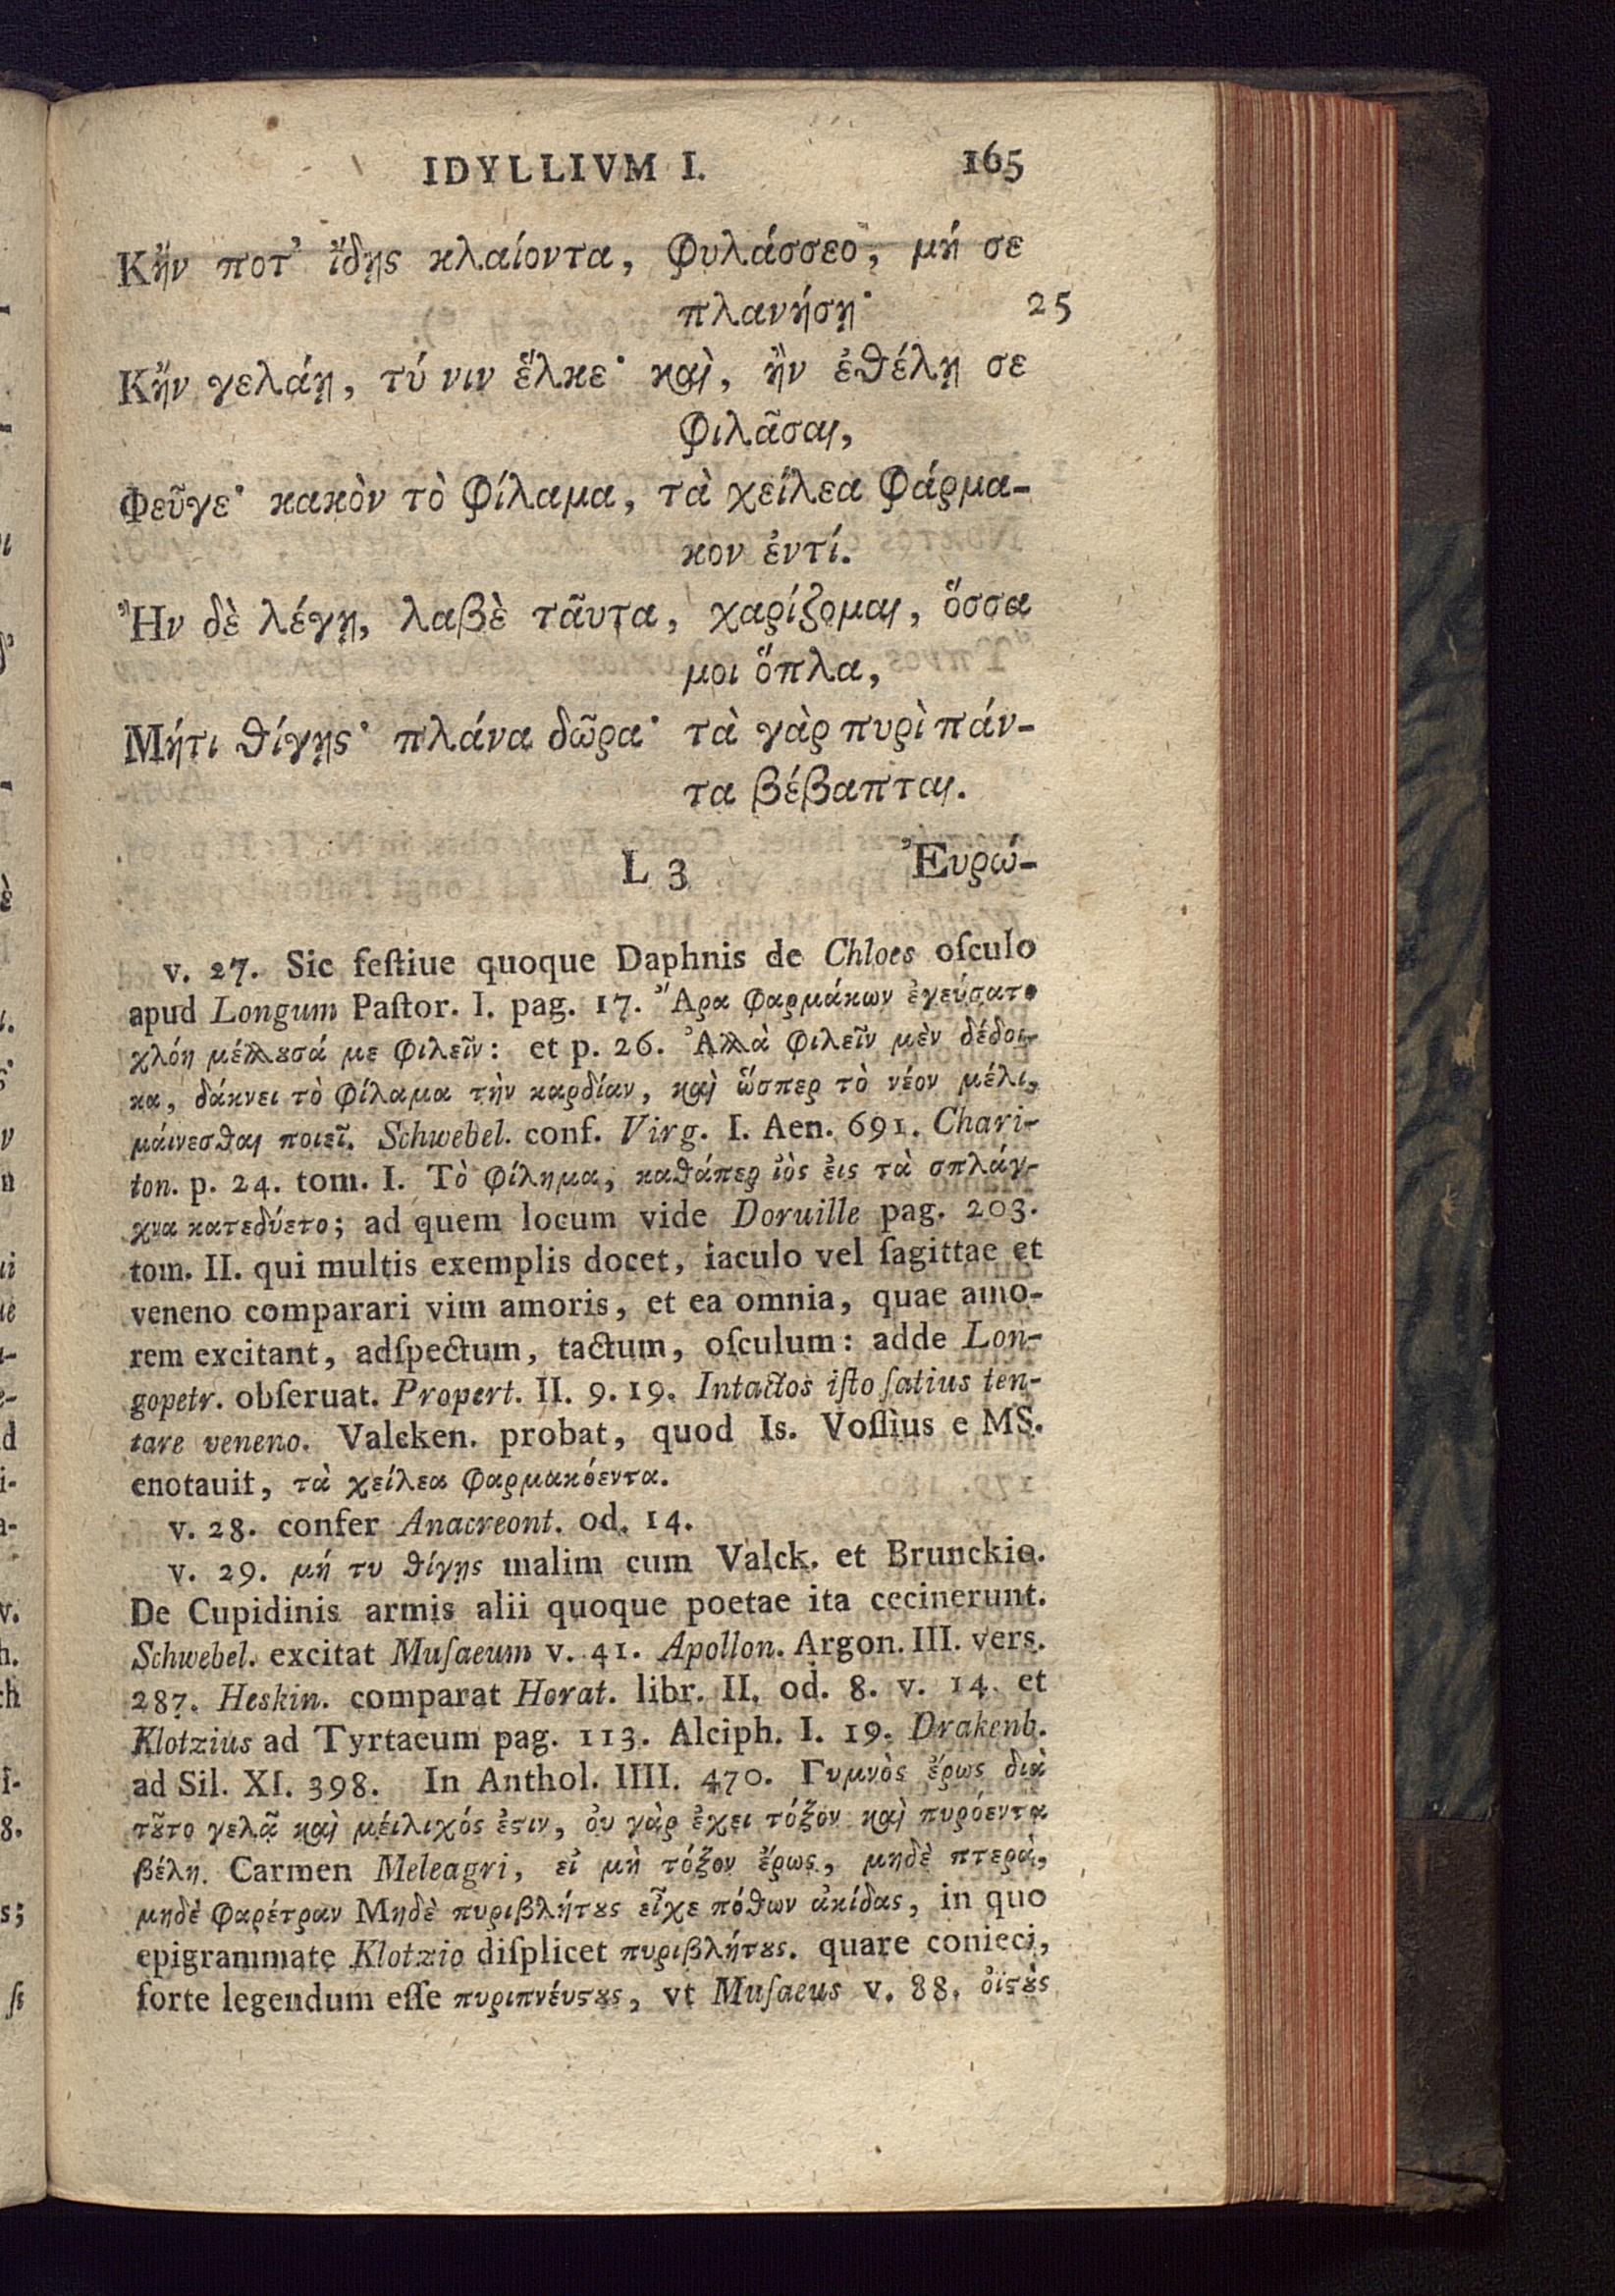 IDYLLIVM I. 165
Κἤν ποτ’ ἴδῃς κλαίοντα, φυλάσσεο, μή σε
πλανήσῃ· 25
Κἤν γελάῃ, τύ νιν ἕλκε· καὶ, ἢν ἐθέλῃ σε
φιλᾶσαι,
Φεῦγε· κακὸν τὸ φίλαμα, τὰ χείλεα φάρμα-
κον ἐντί.
Ἢν δὲ λέγῃ, λαβὲ ταῦτα, χαρίζομαι, ὅσσα
μοι ὅπλα,
Μήτι θίγῃς· πλάνα δῶρα· τὰ γὰρ πυρὶ πάν-
τα βέβαπται.
L 3 Ἐυρώ-
v. 27. Sic feſtiue quoque Daphnis de Chloes oſculo
apud Longum Paſtor. I. pag. 17. Ἄρα φαρμάκων ἐγεύσατο
χλόη μέλλουσά με φιλεῖν: et p. 26. Ἀλλὰ φιλεῖν μὲν δέδοι-
κα, δάκνει τὸ φίλαμα τὴν καρδίαν, καὶ ὥσπερ τὸ νέον μέλι,
μάινεσθαι ποιεῖ. Schwebel. conf. Virg. I. Aen. 691. Chari-
ton. p. 24. tom. I. Τὸ φίλημα, καθάπερ ἰὸς ἐις τὰ σπλάγ-
χνα κατεδύετο; ad quem locum vide Doruille pag. 203.
tom. II. qui multis exemplis docet, iaculo vel ſagittae et
veneno comparari vim amoris, et ea omnia, quae amo-
rem excitant, adſpectum, tactum, oſculum: adde Lon-
gopetr. obſeruat. Propert. II. 9. 19. Intactos iſto ſatius ten-
tare veneno. Valcken. probat, quod Is. Voſſius e MS.
enotauit, τὰ χείλεα φαρμακόεντα.
v. 28. confer Anacreont. od. 14.
v. 29. μή τυ θίγῃς malim cum Valck. et Brunckio.
De Cupidinis armis alii quoque poetae ita cecinerunt.
Schwebel. excitat Muſaeum v. 41. Apollon. Argon. III. vers.
287. Heskin. comparat Horat. libr. II. od. 8. v. 14. et
Klotzius ad Tyrtaeum pag. 113. Alciph. I. 19. Drakenb.
ad Sil. XI. 398. In Anthol. IIII. 470. Γυμνὸς ἔρως διὰ
τοῦτο γελᾷ καὶ μέιλιχός ἐστιν, ὀυ γὰρ ἔχει τόξον καὶ πυρόεντα
βέλη. Carmen Meleagri, εἰ μὴ τόξον ἔρως, μηδὲ πτερὰ,
μηδὲ φαρέτραν Μηδὲ πυριβλήτους εἶχε πόθων ἀκίδας, in quo
epigrammate Klotzio diſplicet πυριβλήτους. quare conieci,
forte legendum eſſe πυριπνέυστους, vt Muſaeus v. 88. ὀϊστοὺς